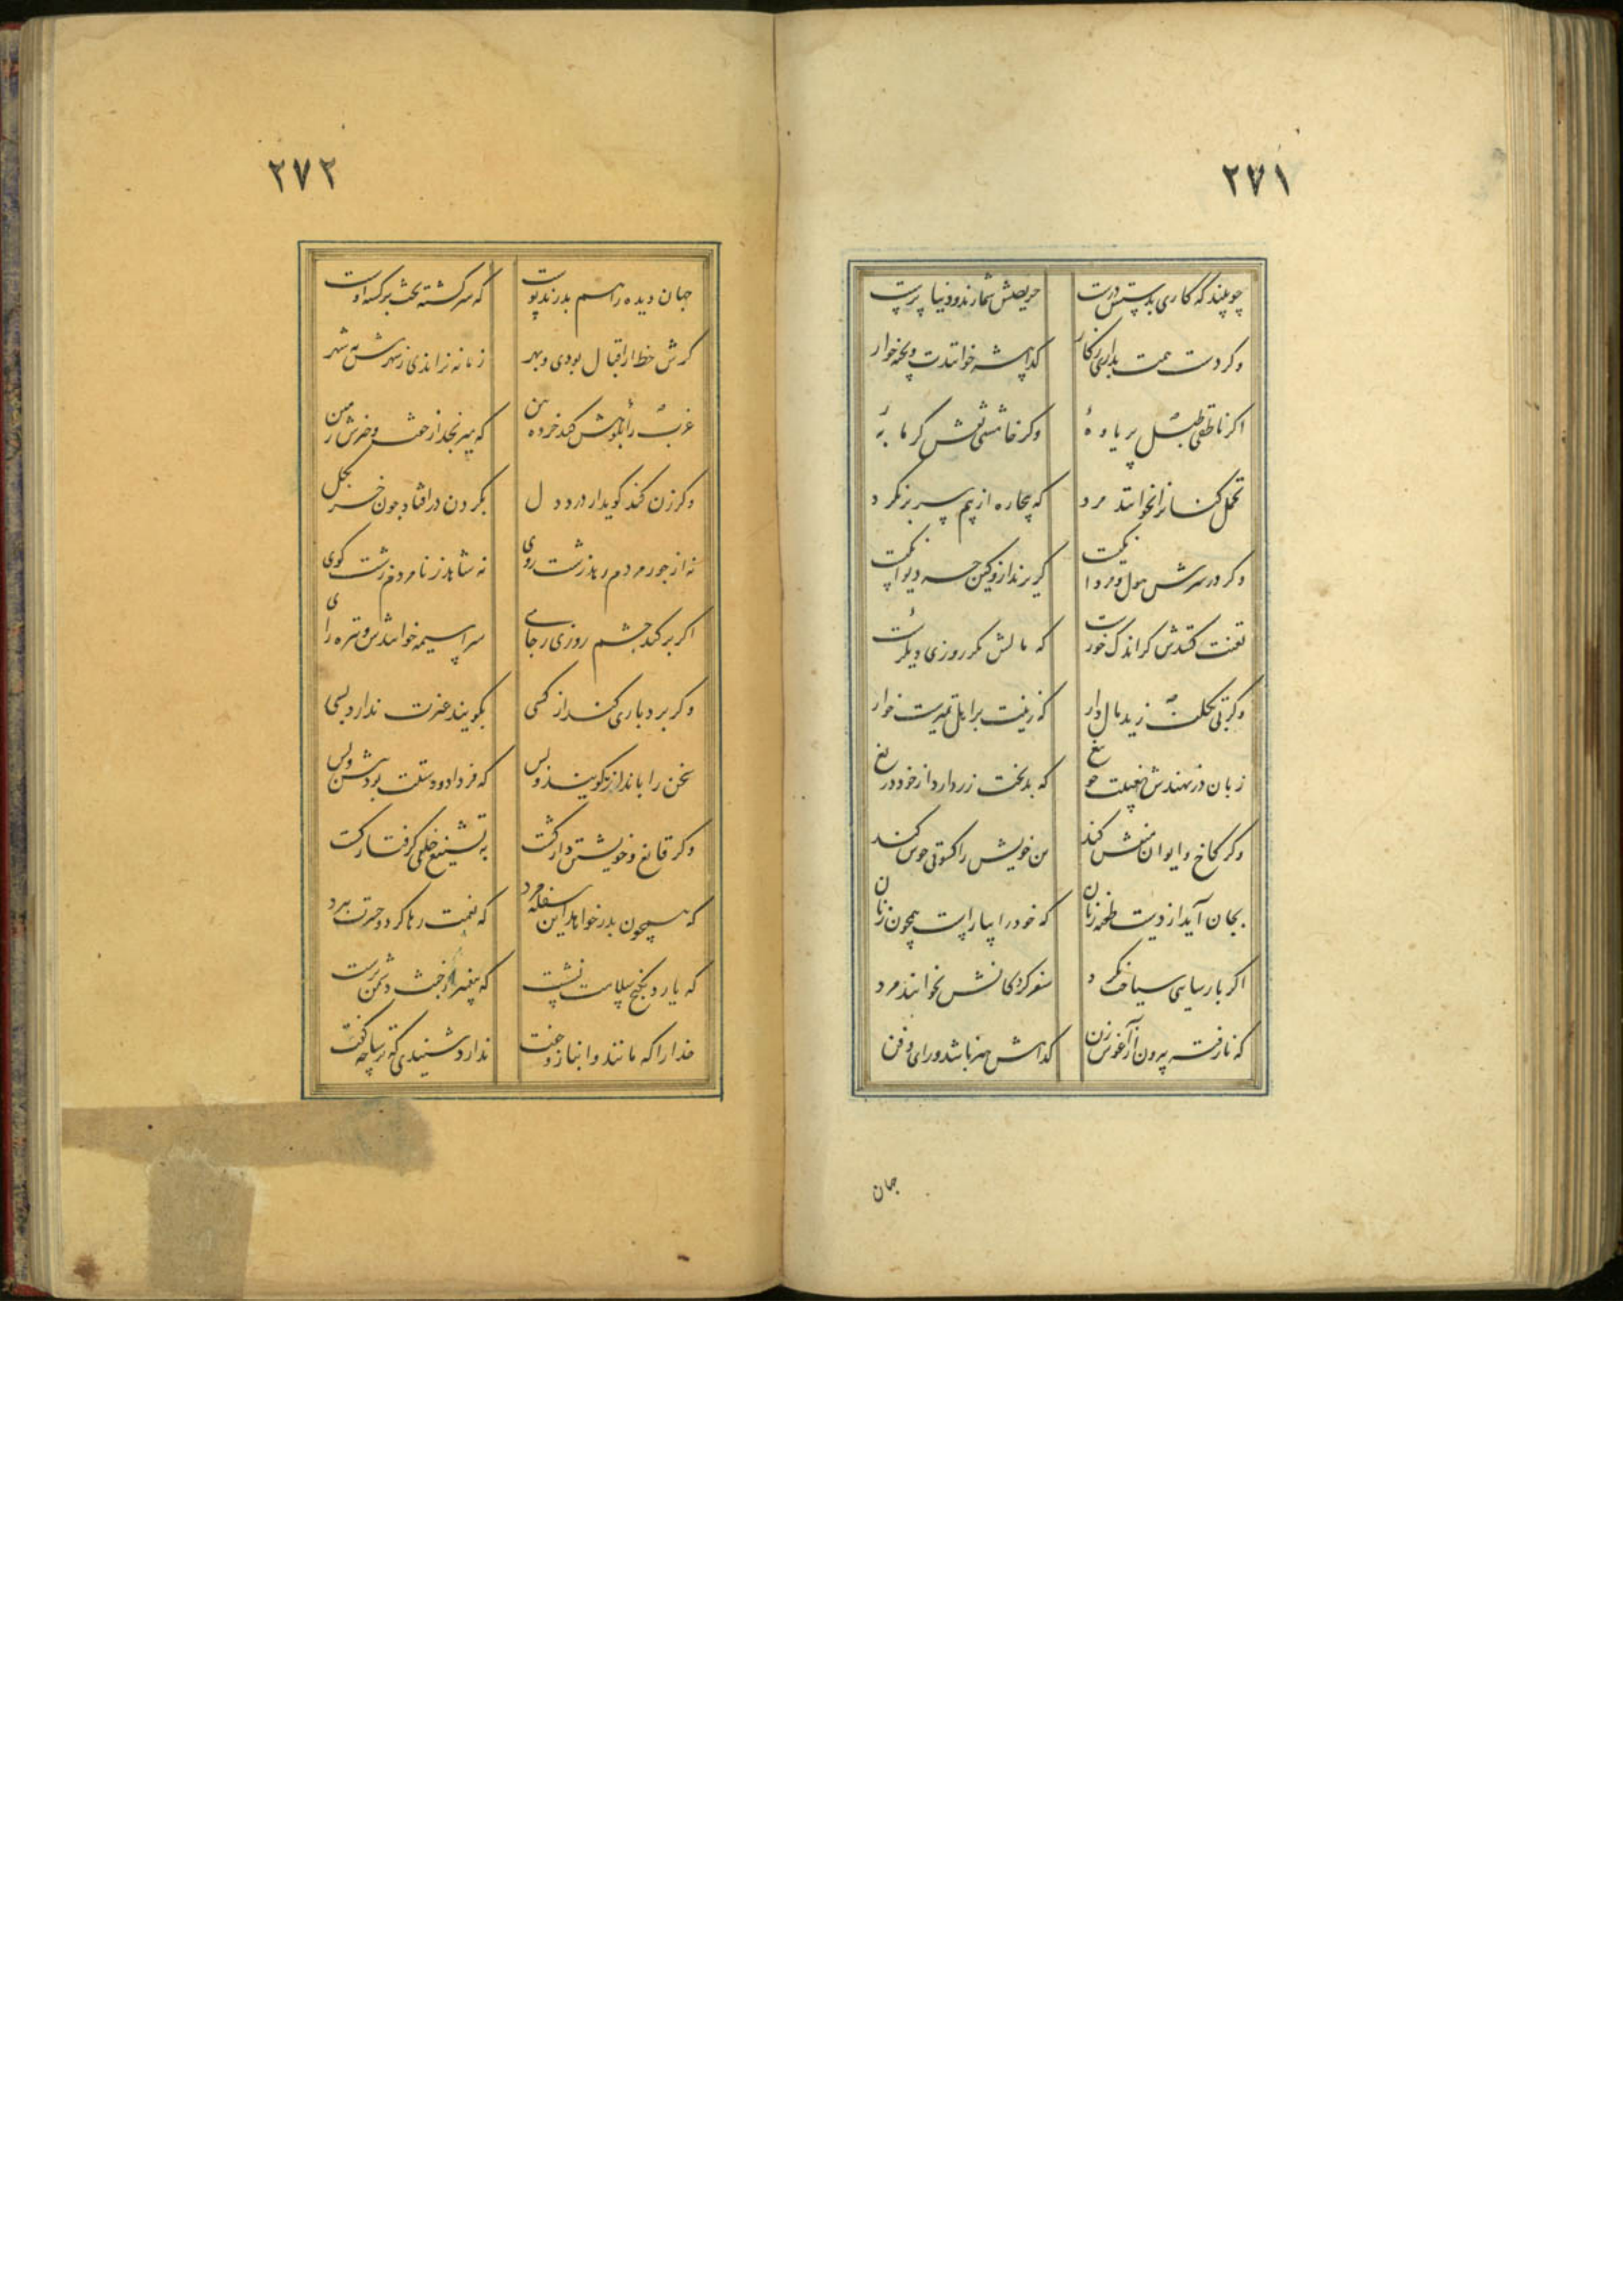 ۲۷۱
چو بینند که کاری بدستش درست حریصش شمارند و دنیا پرست
وکر دست همت بداری زکار کدا پیشه خوانندت و پخته خوار
اکر ناطقی طبل پر یاوهٔ وکر خامشی نقش کرمابهٔ
تحمل کنانرا نخوانند مرد که بیچاره از بیم سر برنکرد
وکر در سرش هول و مردانکیست کریزند ازو کین چه دیوانکیست
تعنت کنندش کر اندک خورست که مالش مکر روزی دیکرست
وکر بی تکلف زید مال دار که زینت بر اهل تمیزست خوار
زبان در نهندش بغیبت چو تیغ که بدبخت زر دارد از خود دریغ
وکر کاخ و ایوان منقش کند من خویش را کسوتی خوش کند
بجان آید از دست طعنه زنان که خود را بیاراست همچون زنان
اکر پارسایی سیاحت نکرد سفر کردکانش نخوانند مرد
که نارفته بیرون ز آغوش زن کدامش هنر باشد و رای و فن
جهان
۲۷۲
جهان دیده را هم بدرند پوست که سرکشته بخت برکشته اوست
کرش حظ از اقبال بودی و بهر زمانه نراندی ز شهرش به شهر
عزب را نکوهش کند خرده بین که میرنجد از خفت و خیزش زمین
وکر زن کند کوید از درد دل بکردن در افتاد چون خر بکل
نه از جور مردم رهد زشت روی نه شاهد ز نامردم زشت کوی
اکر برکند خشم روزی ز جای سراسیمه خوانندش و تیره رای
وکر بردباری کند از کسی بکویند غیرت ندارد بسی
سخی را باندرز کویند بس که فردا دو دستت بود پیش و پس
وکر قانع و خویشتن دار کشت به تشنیع خلقی کرفتار کشت
که همچون پدر خواهد این سفله مرد که نعمت رها کرد و حسرت ببرد
که یارد بکنج سلامت نشست که پیغمبر از خبث دشمن نرست
خدا را که مانند و انباز و جفت ندارد شنیدی که ترسا چه کفت